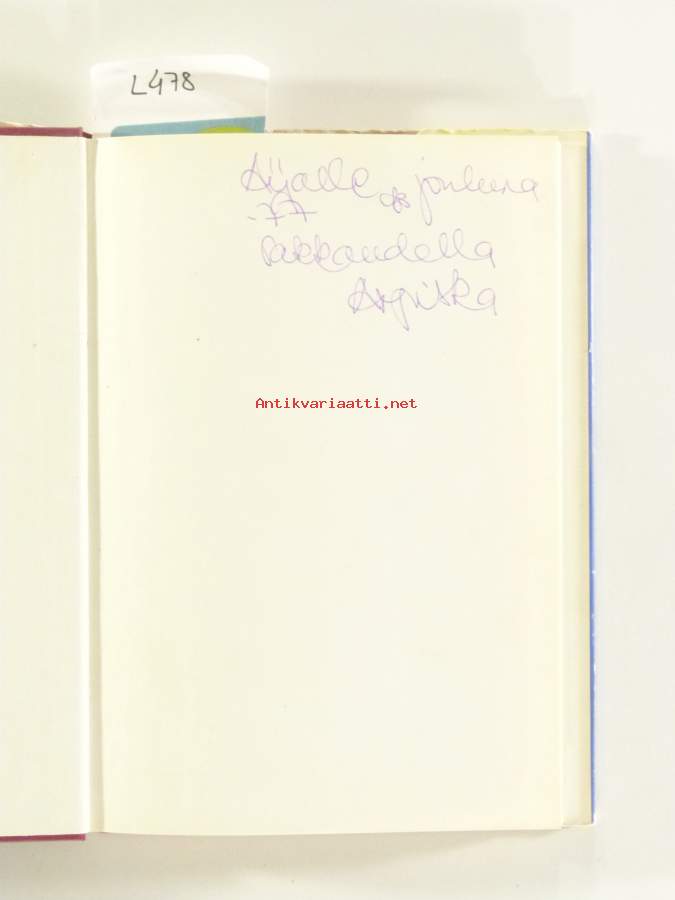 L478
Aijalle jouluna
-77
rakkaudella
Antikvariaatti.net